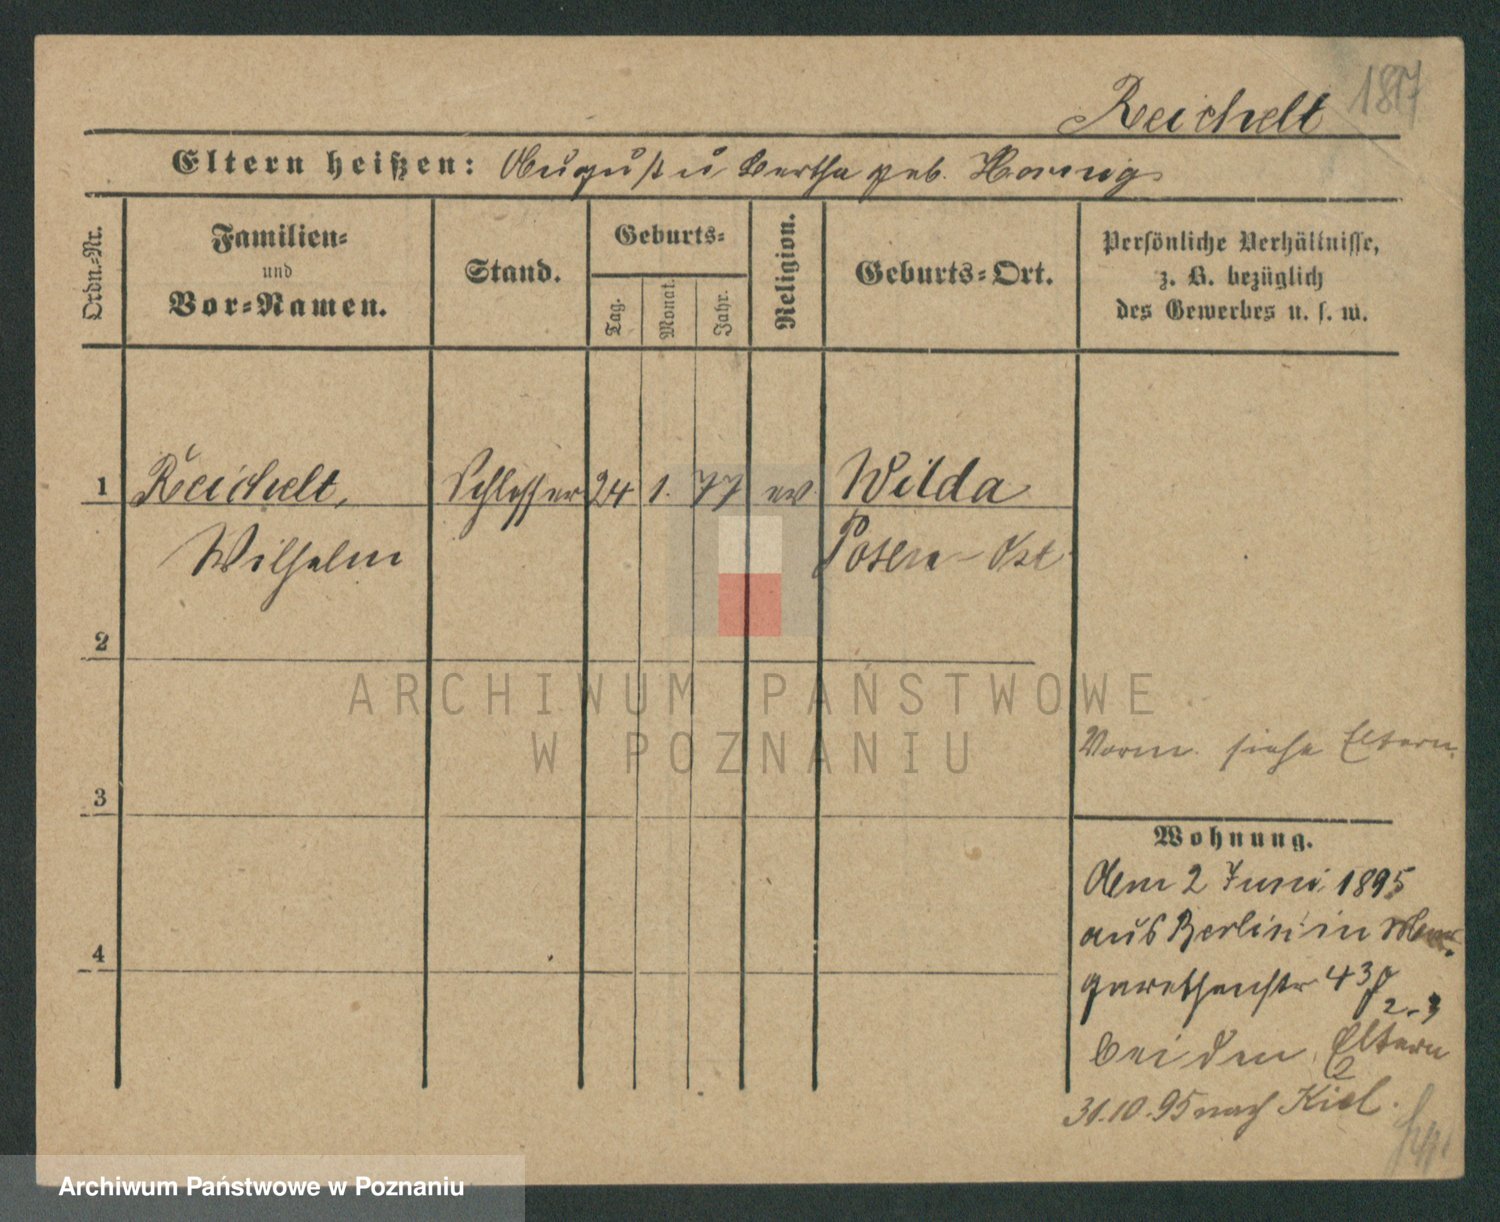 1817
Reichelt
Eltern heißen: August u Bertha geb. Hornig
Ordn.-Nr.
Familien-
und
Vor-Namen.
Stand.
Geburts-
Tag.
Monat.
Jahr.
Religion.
Geburts-Ort.
Persönliche Verhältnisse,
z. B. bezüglich
des Gewerbes u. s. w.
1 Reichelt, Schlosser 24 1. 77 ev Wilda
Wilhelm Posen-Ost
2
ARCHIWUM PAŃSTWOWE
W POZNANIU
Vorm. siehe Eltern.
3
Wohnung.
Dem 2 Juni 1895
aus Berlin in Mar-
garethenstr 43
2-3
bei den Eltern
31.10.95 nach Kiel.
4
Archiwum Państwowe w Poznaniu